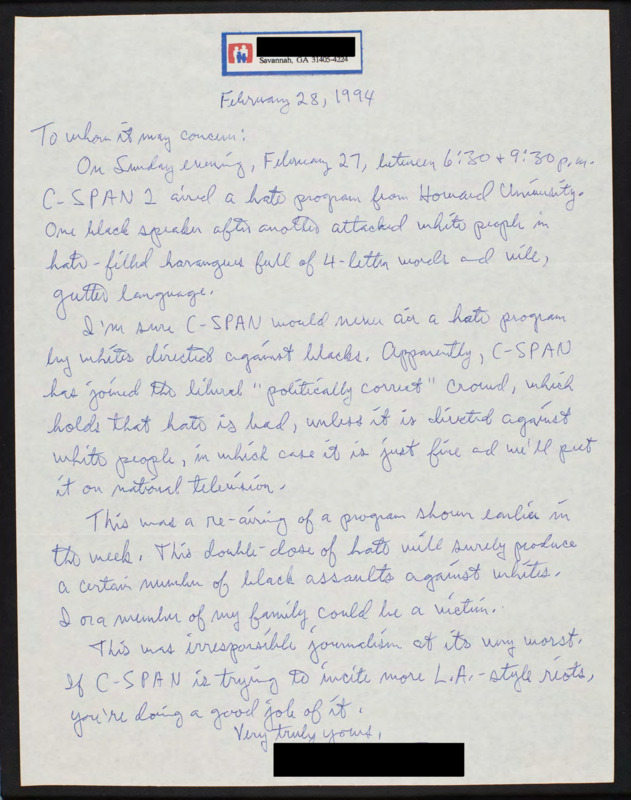 Savannah, GA 31405-4224
February 28, 1994
To whom it may concern:
On Sunday evening, February 27, between 6:30 + 9:30 p.m.
C-SPAN 2 aired a hate program from Howard University.
One black speaker after another attacked white people in
hate-filled harangues full of 4-letter words and vile,
gutter language.
I'm sure C-SPAN would never air a hate program
by whites directed against blacks. Apparently, C-SPAN
has joined the liberal "politically correct" crowd, which
holds that hate is bad, unless it is directed against
white people, in which case it is just fine and we'll put
it on national television.
This was a re-airing of a program shown earlier in
the week. This double-dose of hate will surely produce
a certain number of black assaults against whites.
I or a member of my family could be a victim.
This was irresponsible journalism at its very worst.
If C-SPAN is trying to incite more L.A.-style riots,
you're doing a good job of it.
Very truly yours,